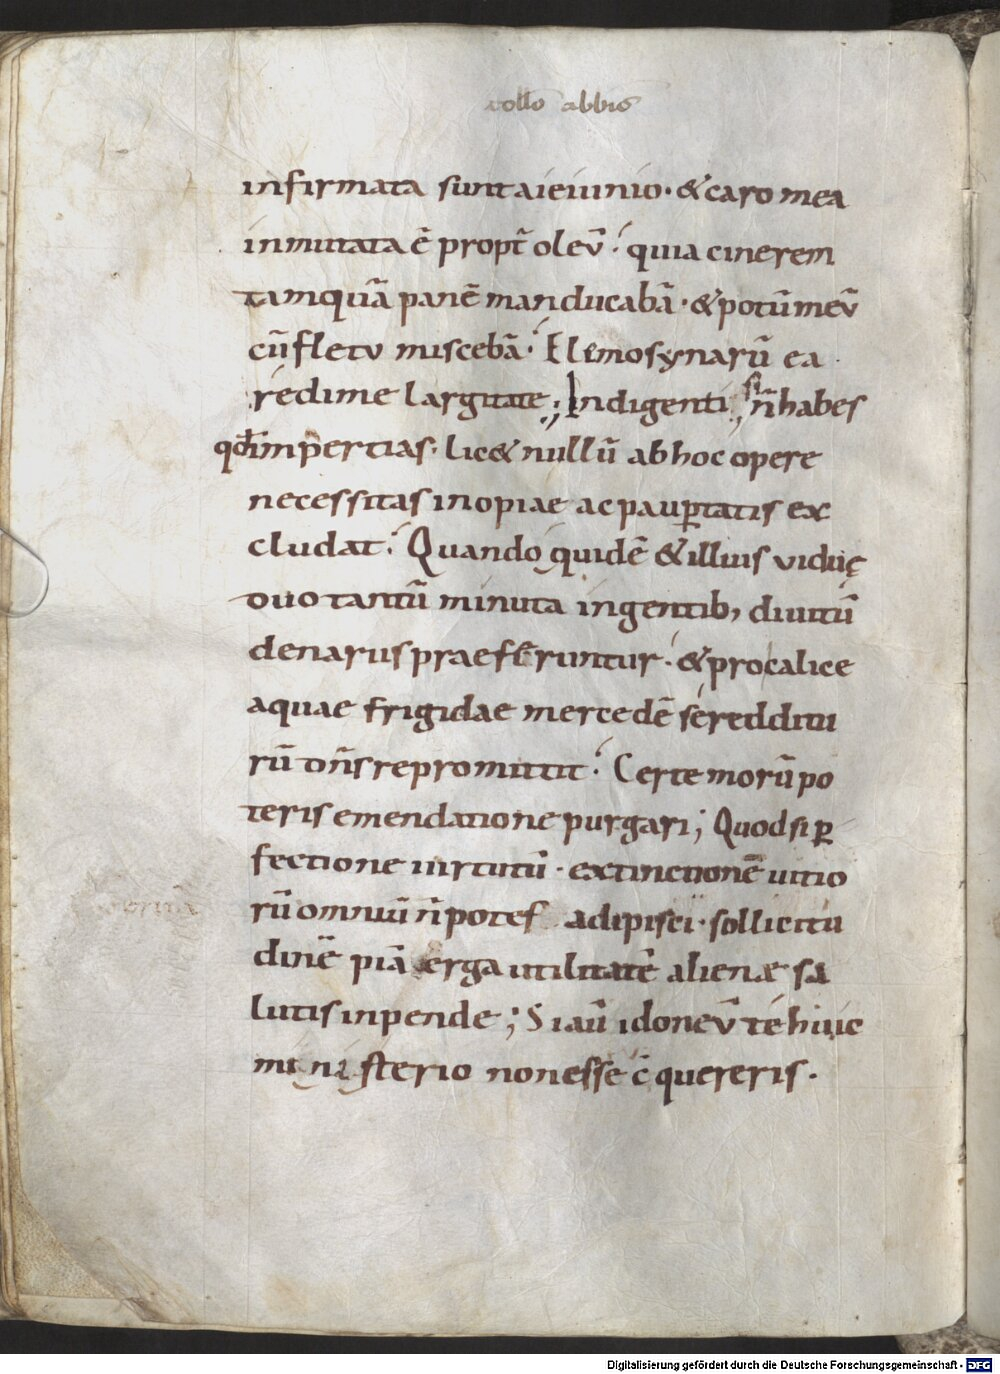 collo abbis
infirmata sunt a ieiunio · & caro mea
inmutata ē propt̄ oleū · quia cinerem
tamquā panē manducabā · & potū meū
cū fletu miscebā · Elemosynarū ea
redime largitate ; Indigenti si n̄ habes
qđ impertias · lic& nullū ab hoc opere
necessitas inopiae ac paup̱tatis ex
cludat · Quando quidē & illius viduę
duo tantū minuta ingentib; diuitū
denariis praeferuntur · & pro calice
aquae frigidae mercedē se redditu
rū dn̄s repromittit · Certe morū po
teris emendatione purgari ; Quod si p̱
fectione uirtutū · extinctionē uitio
rū omniū n̄ potes adipisci · sollicitu
dinē piā erga utilitatē alienæ sa
lutis inpende ; Si aū idoneū te huic
ministerio non esse c̄quereris ·
Digitalisierung gefördert durch die Deutsche Forschungsgemeinschaft - DFG